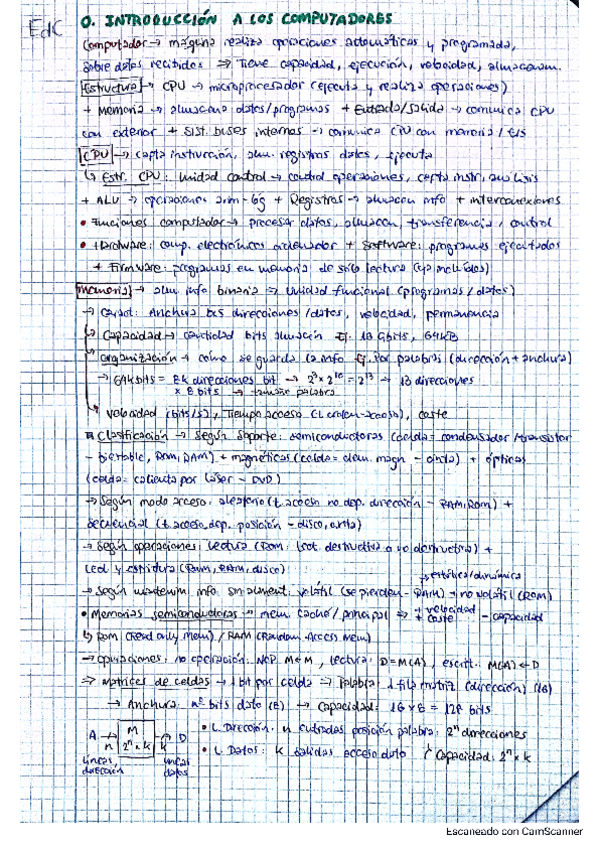 EdC
0. INTRODUCCIÓN A LOS COMPUTADORES
Computador → máquina realiza operaciones automáticas y programada,
sobre datos recibidos ⇒ Tiene capacidad, ejecución, velocidad, almacenam.
Estructura → CPU → microprocesador (ejecuta y realiza operaciones)
+ Memoria → almacena datos/programas + Entrada/Salida → comunica CPU
con exterior + Sist. buses internos → comunica CPU con memoria / E/S
CPU → capta instrucción, alm. registros datos, ejecuta
↳ Estr. CPU: Unidad control → control operaciones, capta instr, análisis
+ ALU → operaciones aritm-lóg + Registros → almacen info + interconexiones
• Funciones computador → procesar datos, almacen, transferencia, control
• Hardware: comp. electrónicos ordenador + Software: programas ejecutados
+ Firmware: programas en memoria de sólo lectura (ya incluidos)
Memoria → alm. info binaria ⇒ Unidad funcional (programas / datos)
→ Caract: Anchura bus direcciones / datos, velocidad, permanencia
↳ Capacidad → cantidad bits almacén Ej: 16 Gbits, 64KB
↳ Organización → cómo se guarda la info Ej. Por palabras (dirección + anchura)
→ 64kbits = 8k direcciones bit → 2³ × 2¹⁰ = 2¹³ → 13 direcciones
× 8 bits → tamaño palabra
↳ Velocidad (bits/s), Tiempo acceso, coste
Clasificación → Según soporte: semiconductoras (celda = condensador / transistor
- biestable, ROM, RAM) + magnéticas (celda = elem. magn. - cinta) + ópticas
(celda = calienta por láser - DVD)
→ Según modo acceso: aleatorio (t. acceso no dep. dirección - RAM, ROM) +
secuencial (t. acceso dep. posición - disco, cinta)
→ Según operaciones: lectura (ROM: lect. destructiva o no destructiva) +
lect y escritura (RAM, disco)
→ estática/dinámica
→ Según mantenim info. sin aliment: volátil (se pierden - RAM) + no volátil (ROM)
• Memorias semiconductoras → mem. caché / principal ⇒ + velocidad + coste - capacidad
↳ ROM (Read only Mem) / RAM (Random Access Mem)
→ Operaciones: no operación: NOP M=M, lectura: D=M(A), escrit: M(A) ← D
⇒ Matrices de celdas → 1 bit por celda → Palabra: 1 fila matriz (dirección) (16)
→ Anchura: nº bits dato (8) → Capacidad: 16 × 8 = 128 bits
A → M → D
n 2ⁿ × k k
líneas dirección líneas datos
• L. Dirección: n entradas posición palabra: 2ⁿ direcciones
• L. Datos: k salidas acceso dato / Capacidad: 2ⁿ × k
Escaneado con CamScanner